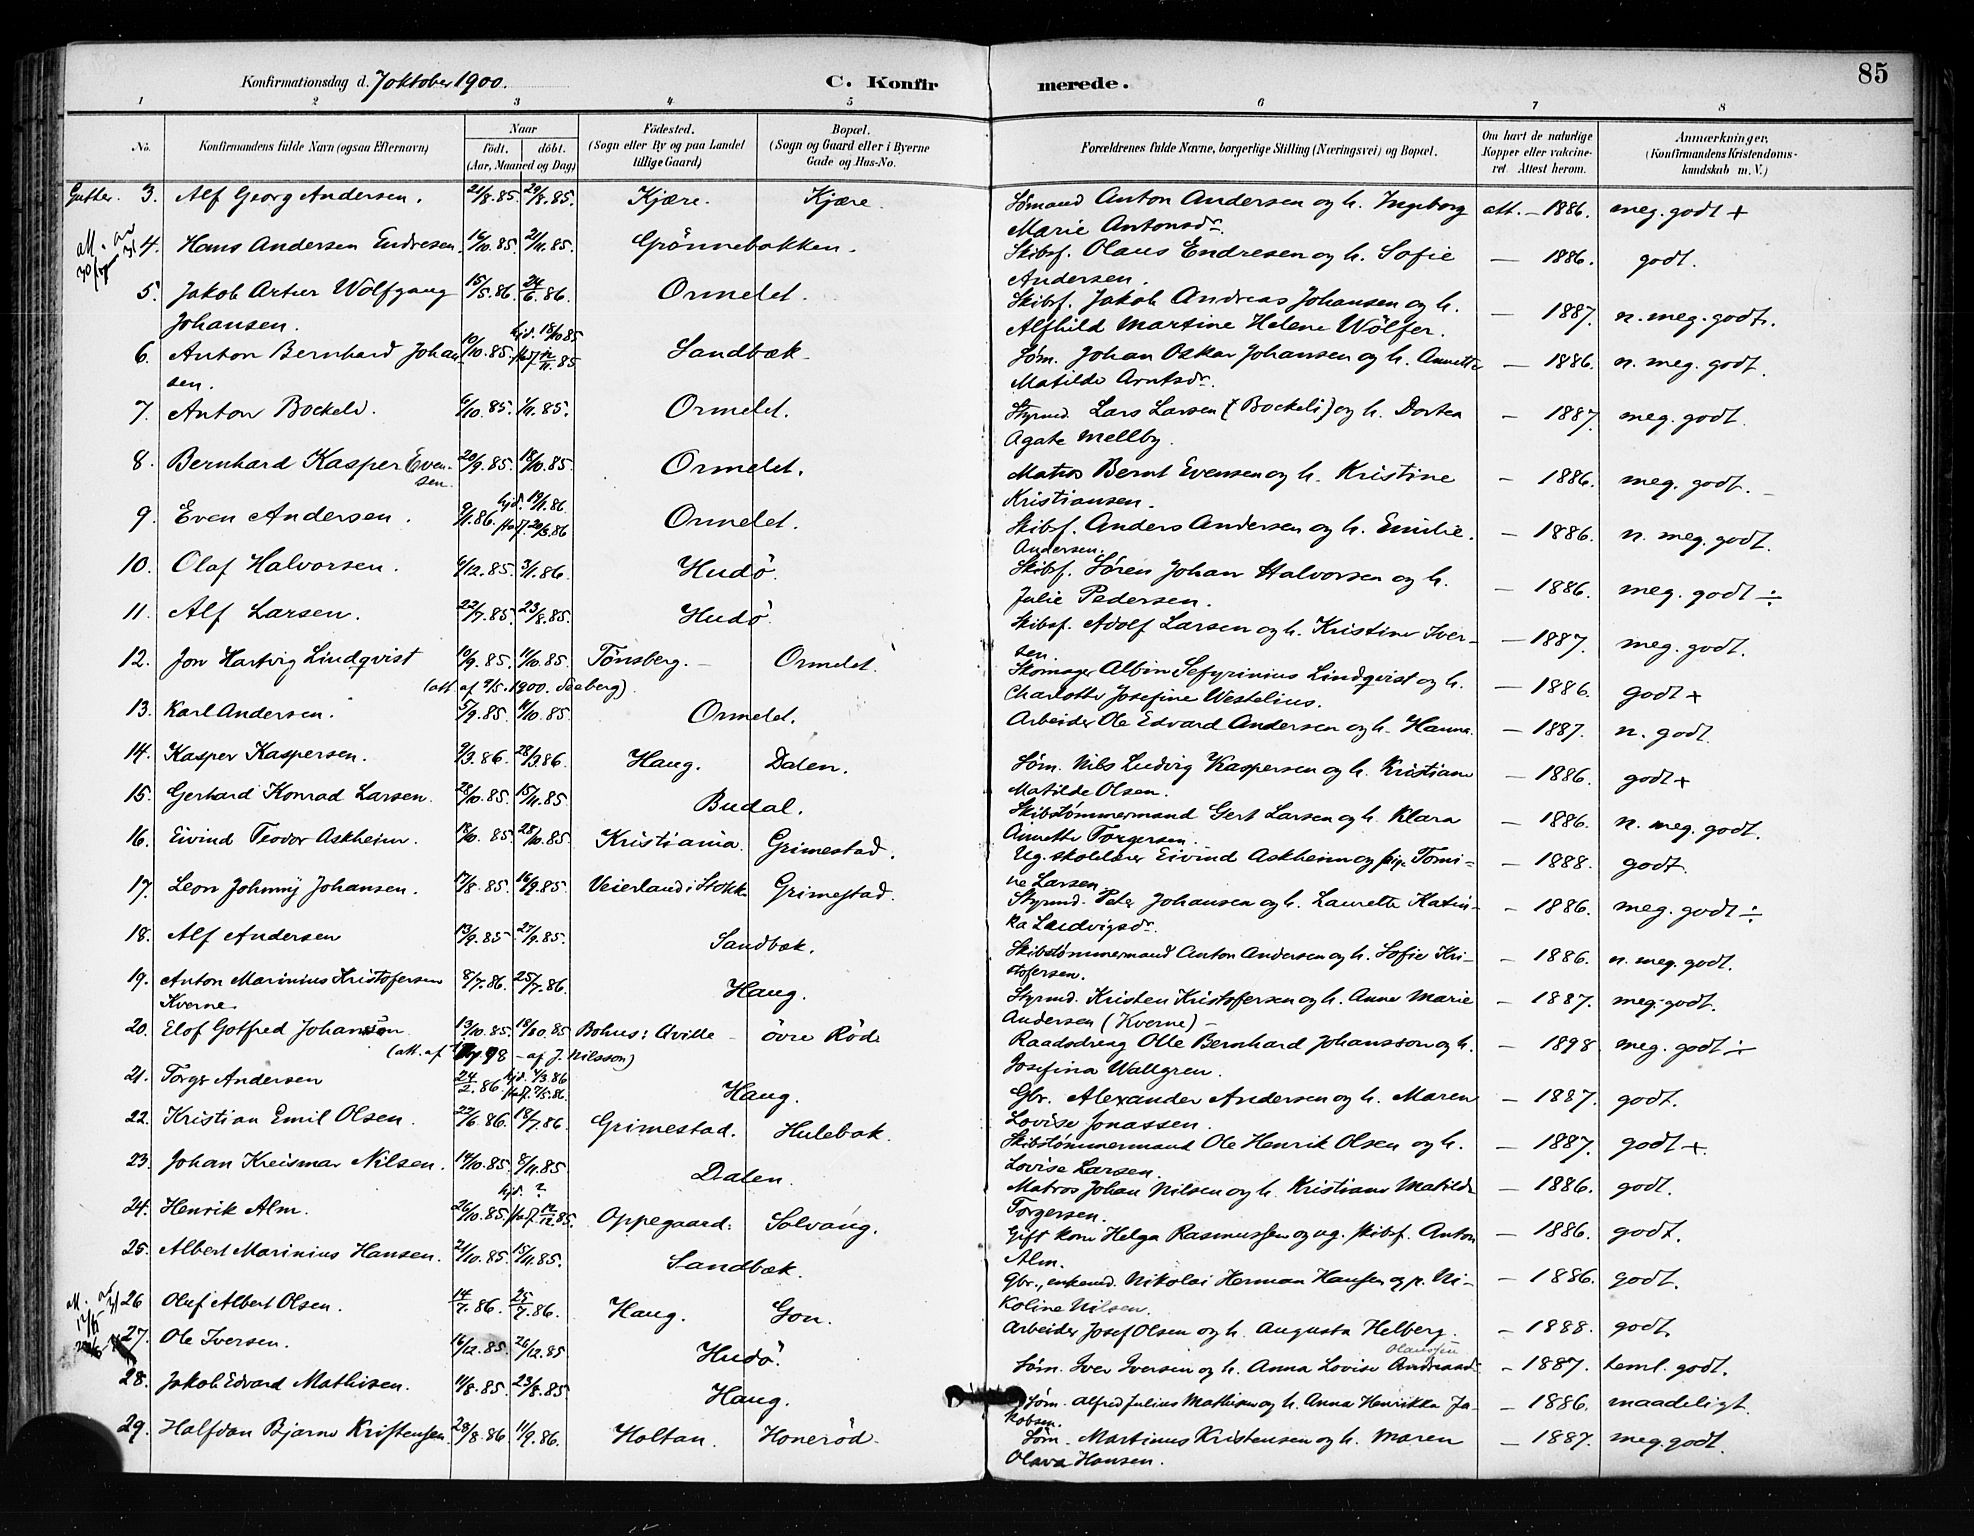 85
Konfirmationsdag d. 7 oktober 1900.
C. Konfirmerede.
1 2 3 4 5 6 7 8
No.
Konfirmandens fulde Navn (ogsaa Efternavn)
Naar født. døbt. (Aar, Maaned og Dag)
Fødested. (Sogn eller By og paa Landet tillige Gaard)
Bopæl. (Sogn og Gaard eller i Byerne Gade og Hus-No.
Forældrenes fulde Navne, borgerlige Stilling (Næringsvei) og Bopæl.
Om havt de naturlige Kopper eller vakcineret. Attest herom.
Anmærkninger, (Konfirmandens Kristendomskundskab m. V.)
Gutter. 3. Alf Georg Andersen. 21/8.85. 29/8.85. Kjære. Kjære. Sømand Anton Andersen og h. Ingeborg att. - 1886. meg. godt +
Marie Antonsdr.
4. Hans Andersen Endresen. 16/10.85. 21/11.85. Grönnebakken. Skibsf. Olaus Endresen og h. Sofie — 1886. godt.
Andersen.
5. Jakob Artur Wolfgang 15/5.86. 24/6.86. Ormelet. Skibsf. Jakob Andreas Johansen og h. — 1887. n. meg. godt.
Johansen. Alfhild Martine Helene Wölfer.
6. Anton Bernhard Johan- 10/10.85. hjd. 18/10 85 Sandbæk. Søm. Johan Oskar Johansen og h. Annette — 1886. n. meg. godt.
sen. Matilde Arntsdr.
7. Anton Bockeli. 6/10.85. 1/11.85. Ormelet. Styrmd. Lars Larsen (Bockeli) og h. Dortea — 1887. meg. godt.
Agate Mellby.
8. Bernhard Kasper Even- 20/9.85. 18/10.85. Ormelet. Matros Bernt Evensen og h. Kristine — 1886. meg. godt.
sen. Kristiansen.
9. Even Andersen. 9/1.86. hjd. 19/1.86. stadf. 20/3.86 Ormelet. Skibsf. Anders Andersen og h. Emilie — 1886. n. meg. godt.
Andersen.
10. Olaf Halvorsen. 6/12.85. 3/1.86. Hudö. Skibsf. Sören Johan Halvorsen og h. — 1886. meg. godt ÷
Julie Pedersen.
11. Alf Larsen. 22/7.85. 23/8.85. Hudö. Skibsf. Adolf Larsen og h. Kristine Iver- — 1887. meg. godt.
sen.
12. Jon Hartvig Lindqvist 10/9.85. 11/10.85. Tönsberg. — Ormelet. Skomager Albin Sefyrinius Lindqvist og h. — 1886. godt +
(att. af 9/5.1900. Seeberg). Charlotte Josefine Westelius.
13. Karl Andersen. 5/9.85. 4/10.85. Ormelet. Arbeider Ole Edvard Andersen og h. Hanna. — 1887. n. godt.
14. Kasper Kaspersen. 9/3.86. 28/3.86. Haug. Dalen. Søm. Nils Ludvig Kaspersen og h. Kristiane — 1886. godt +
Matilde Olsen.
15. Gerhard Konrad Larsen. 28/10.85. 15/11.85. Budal. Skibstømmermand Gert Larsen og h. Klara — 1886. n. meg. godt.
Annette Torgersen.
16. Eivind Teodor Askheim. 85. 25/10.85. Kristiania. Grimestad. Ug. skolelærer Eivind Askheim og pige Tomi- — 1888. godt.
ne Larsen.
17. Leon Johnny Johansen. 17/8.85. 16/9.85. Veierland i Stokke Grimestad. Styrmd. Peter Johansen og h. Laurette Katin- — 1886. meg. godt ÷
ka Ludvigsdr.
18. Alf Andersen 13/9.85. 27/9.85. Sandbæk. Skibstømmermand Anton Andersen og h. Sofie Kri- — 1886. n. meg. godt.
stofersen.
19. Anton Marinius Kristofersen 8/7.86. 25/7.86. Haug. Styrmd. Kristen Kristofersen og h. Anne Marie — 1887. meg. godt.
Kverne. Andersen (Kverne) —
20. Elof Gotfred Johansson 13/10.85. 19/10.85 Bohus: Qville — övre Röd. Raadsdreng Olle Bernhard Johansson og h. — 1898. meg. godt ÷
(att. af 98 - af J. Nilsson) Josefina Wallgren.
21. Torger Andersen 24/2.86. hjd. 4/3.86 stadf. 2/5.86. Haug. Gbr. Alexander Andersen og h. Maren — 1887. godt.
Lovise Jonassen.
22. Kristian Emil Olsen. 22/6.86. 18/7.86. Grimestad. Hulebak. Skibstømmermand Ole Henrik Olsen og h. — 1887. godt +
Lovise Larsen.
23. Johan Kreismar Nilsen. 14/10.85. 8/11.85 Dalen. Matros Johan Nilsen og h. Kristiane Matilde — 1886. godt.
Torgersen.
24. Henrik Alm. 26/10.85. hjd. ? stadf. 12/12.85. Oppegaard. Solvang. Gift kone Helga Rasmussen og ug. skibsf. Anton — 1886. godt.
Alm.
25. Albert Marinius Hansen. 21/10.85. 15/11.85. Sandbæk. Gbr., enkemd. Nikolai Herman Hansen og p. Ni- — 1886. godt.
koline Nilsen.
26 Oluf Albert Olsen. 14/7.86. 25/7.86. Haug. Gon. Arbeider Josef Olsen og h. Augusta Helberg. — 1888. godt.
27. Ole Iversen. 16/12.85. 26/12.85 Hudö. Søm. Iver Iversen og h. Anna Lovise Andreasd. — 1887. teml. godt.
Olaussen
28. Jakob Edvard Mathisen. 11/8.85. 23/8.85. Haug. Søm. Alfred Julius Mathisen og h. Anna Henrikka Ja- — 1886. maadeligt.
kobsen.
29. Halfdan Bjarne Kristensen. 28/8.86 11/9.86. Holtan. Honeröd. Søm. Martinus Kristensen og h. Maren — 1887. meg. godt.
Olava Hansen.